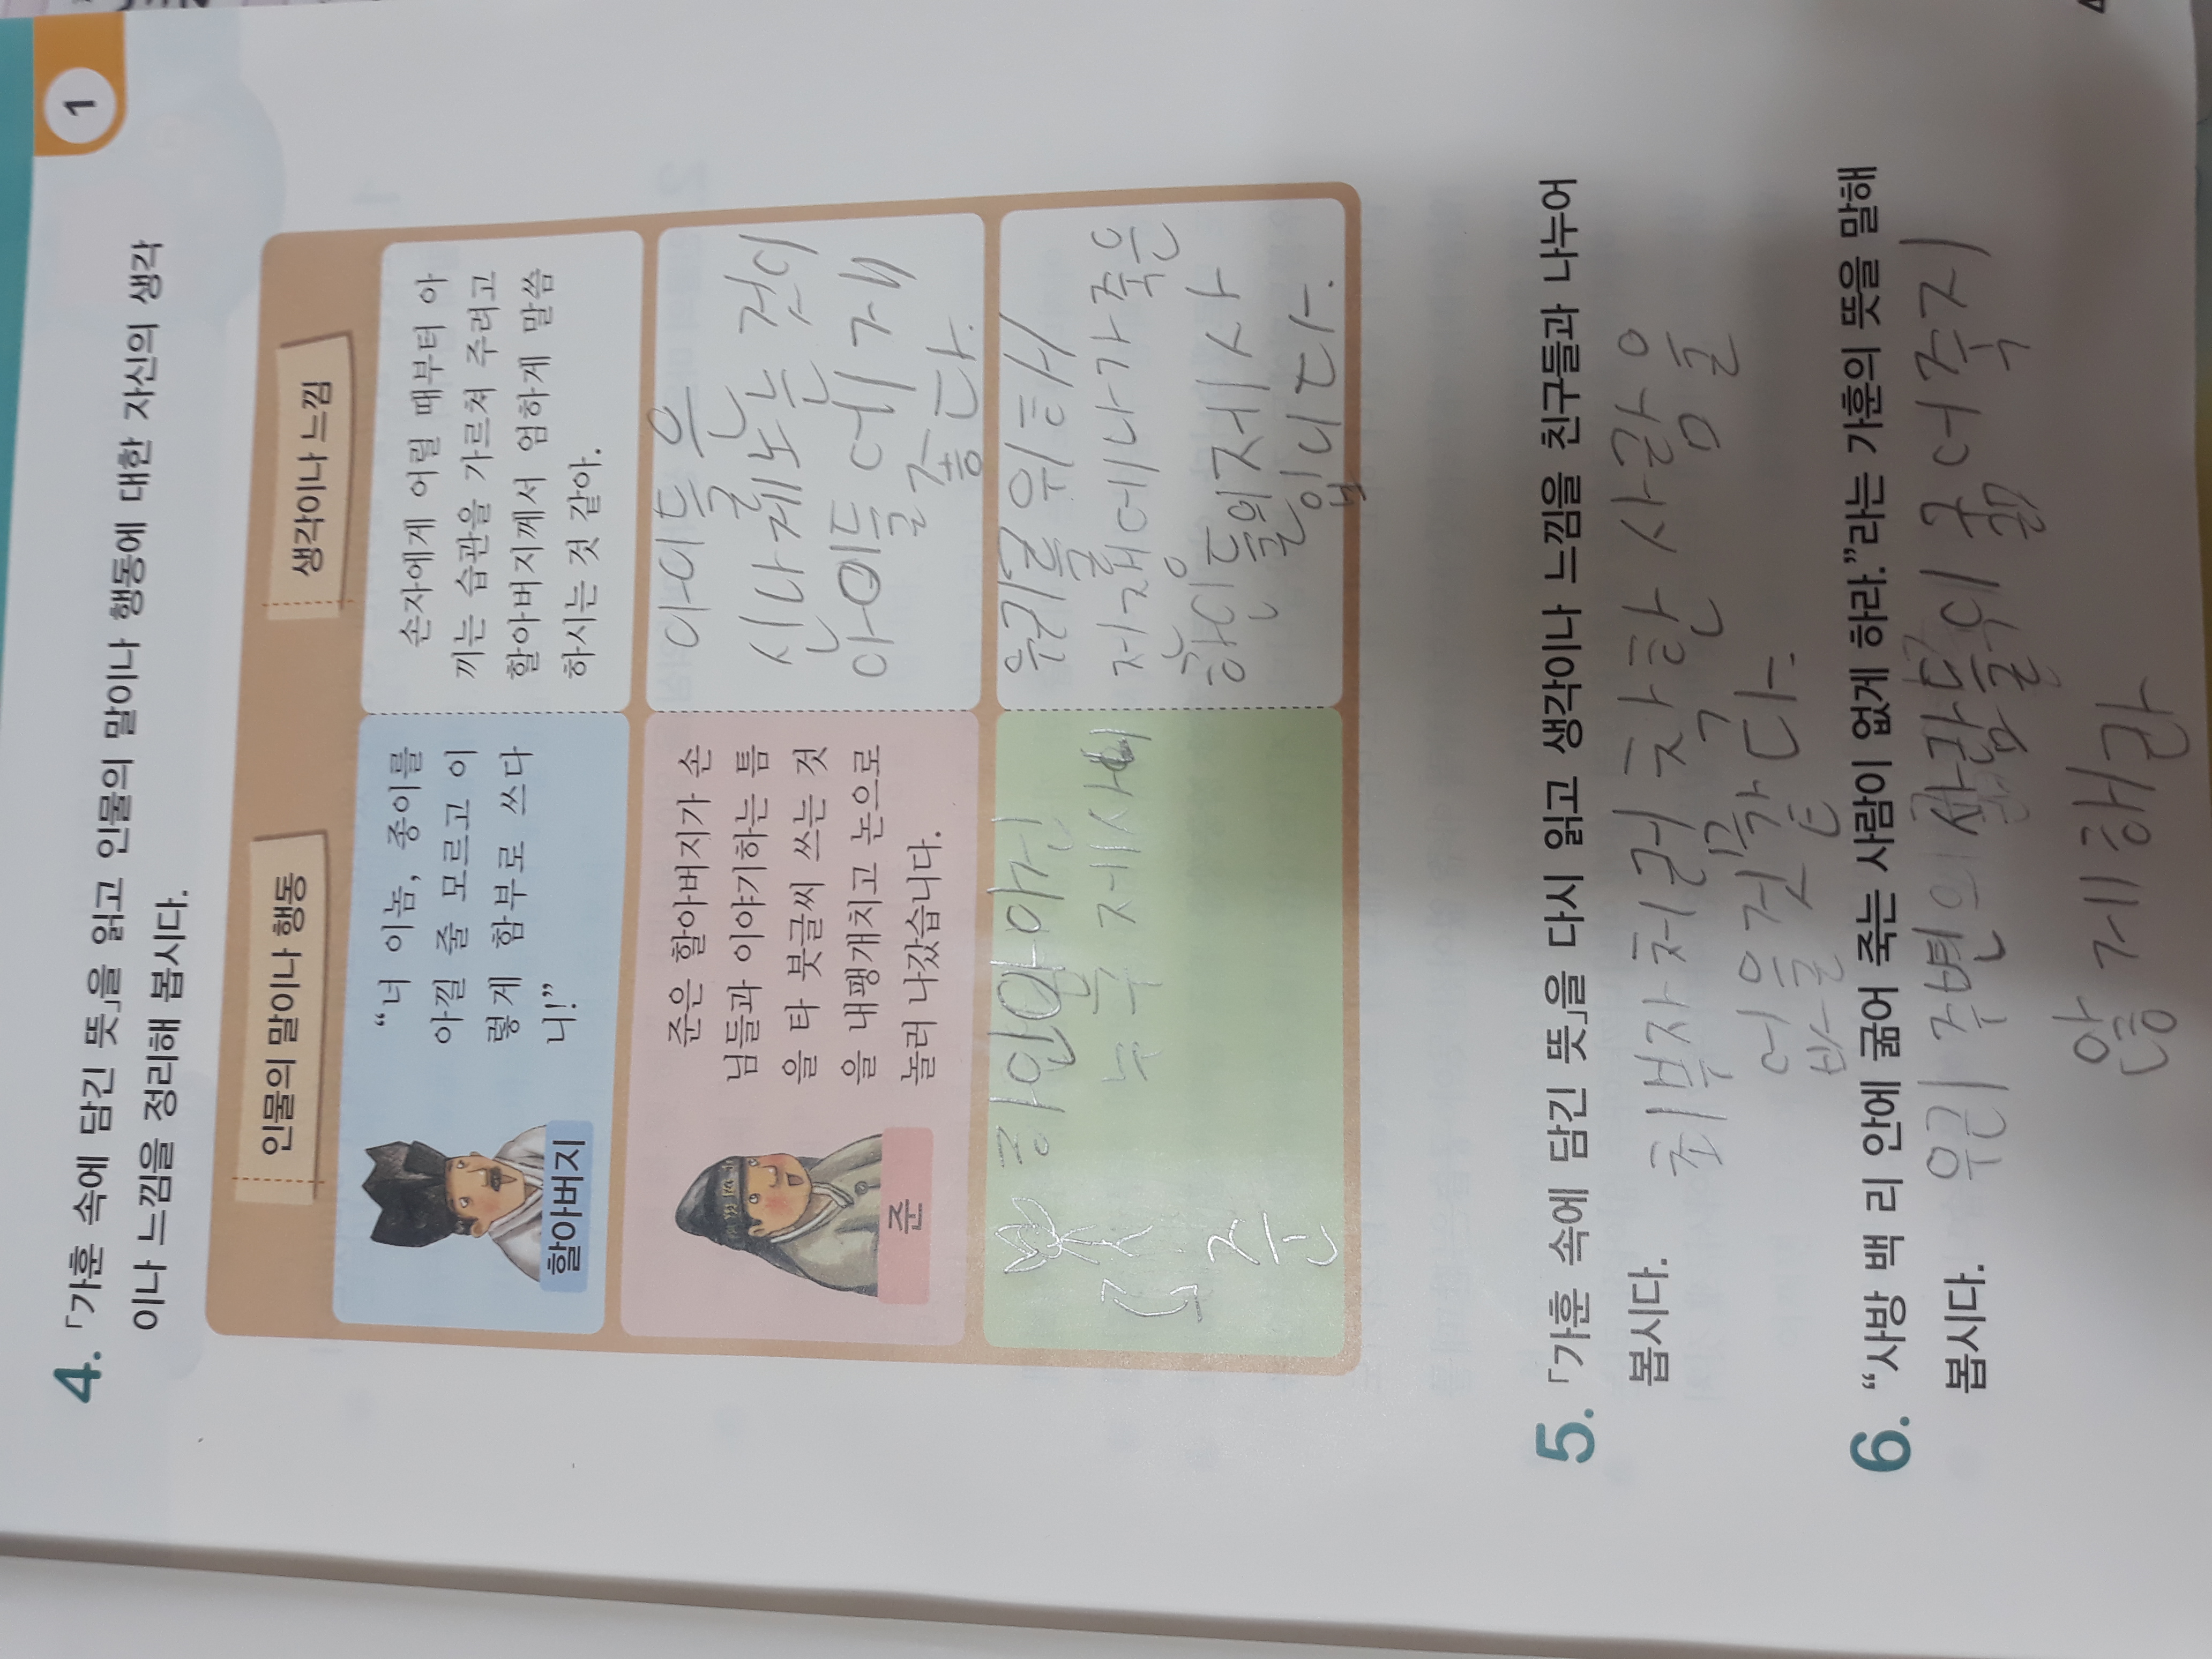 1
4. 「가훈 속에 담긴 뜻」을 읽고 인물의 말이나 행동에 대한 자신의 생각
이나 느낌을 정리해 봅시다.
인물의 말이나 행동
생각이나 느낌
할아버지
"너 이놈, 종이를
아낄 줄 모르고 이
렇게 함부로 쓰다
니!"
손자에게 어릴 때부터 아
끼는 습관을 가르쳐 주려고
할아버지께서 엄하게 말씀
하시는 것 같아.
준
준은 할아버지가 손
님들과 이야기하는 틈
을 타 붓글씨 쓰는 것
을 내팽개치고 논으로
놀러 나갔습니다.
아이들은
신나게 노는 것이
아이들에게
좋다.
준
누구 제사
우리를 위해
나가 죽은
하인들의 제사
입니다.
5. 「가훈 속에 담긴 뜻」을 다시 읽고 생각이나 느낌을 친구들과 나누어
봅시다.
최부자처럼 착한 사람은
없을 것 같다.
6. "사방 백 리 안에 굶어 죽는 사람이 없게 하라."라는 가훈의 뜻을 말해
봅시다.
우리 주변의 사람들이 굶어 죽지
않게 해라